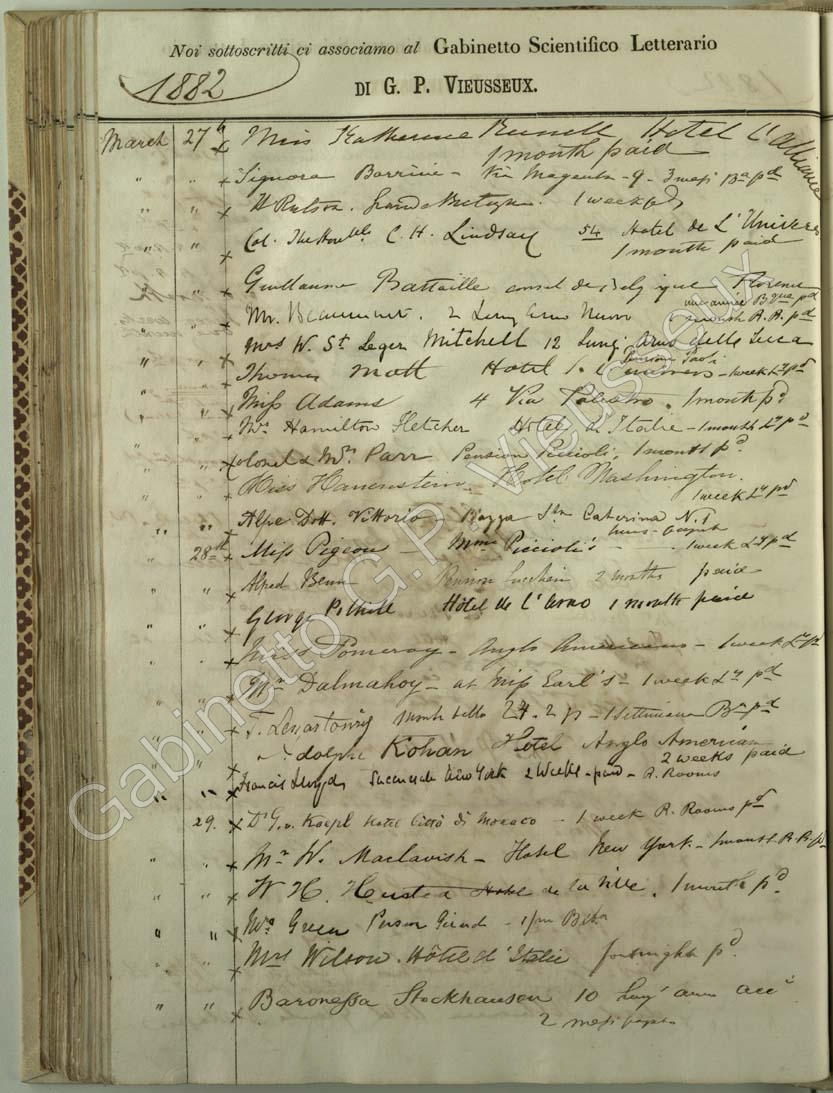 Noi sottoscritti ci associamo al Gabinetto Scientifico Letterario
1882
DI G. P. VIEUSSEUX.
March 27th Miss Katherine Russell Hotel l'alliance
1 month paid
" " Signora Via Magenta - 9 - 3 mesi pd
" " H Rutson. Grande Bretagne. 1 week pd
Col. The Honble. C. H. Lindsay 54 Hotel de L'Univers
1 month paid
" " Guillaume Battaille consul de Belgique Florence
une année pd
" " Mr. Beaumont. 2 Lung Arno Nuovo 1 month R.R. pd
" " Mrs W. St Leger Mitchell 12 Lung' Arno della Zecca
" " Thomas Mott Hotel 1 week pd
" " Miss Adams 4 Via Palestro. 1 month pd
" " Mrs Hamilton Fletcher Hotel d'Italie - 1 month pd
" " Colonel & Mrs Parr Pension Piccioli, 1 month pd.
" " Miss Hotel Washington.
1 week pd
" " Alpe Dott. Vittorio - Piazza Sta Caterina N. 1
28th Miss Pigeon - Mme Piccioli's - 1 week pd
" " Alfred Benn Pension Lucchesi 2 months paid
" " George Polhill Hôtel de L'Arno 1 month paid
" " Miss Pomeroy - Anglo Americano - 1 week pd
" " Mr Dalmahoy - at Miss Earl's - 1 week pd
" " 24. 2 p - 1 Settimana pd
" " Adolph Kohan Hotel Anglo American
2 weeks paid
" " Francis Lloyd, Succursale New York 2 Weeks - paid - R. Rooms
29. Dr G. v. Koepl Hotel Città di Monaco - 1 week R. Rooms pd
" " Mr W. Maclavish - Hotel New York - 1 month R.R. pd
" " W. H. Husted Hotel de la Ville. 1 month pd
" " Mrs Green
" " Mrs Wilson. Hôtel d'Italie fortnight pd
" " Baronessa Stockhausen 10 Lung' arno acc
2 mesi
Gabinetto G.P. Vieusseux